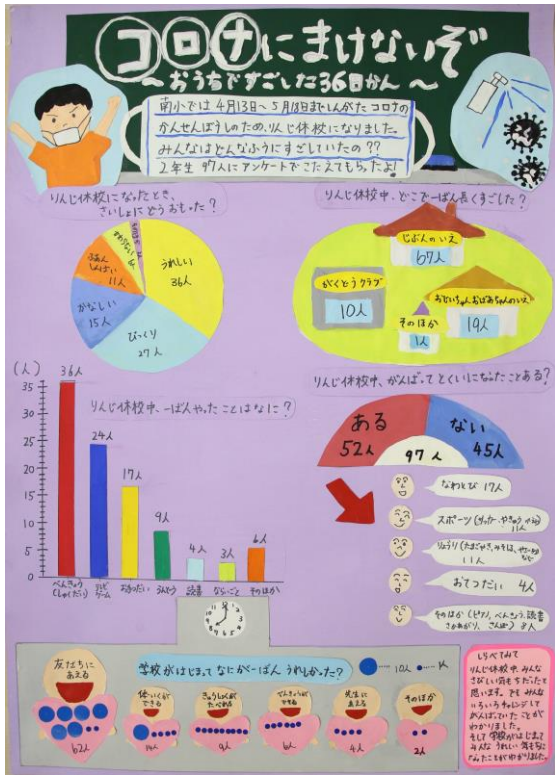 コロナにまけないぞ
～おうちですごした36日かん～
南小では4月13日～5月18日までしんがたコロナの
かんせんぼうしのため、りんじ休校になりました。
みんなはどんなふうにすごしていたの??
2年生97人にアンケートでこたえてもらったよ!
りんじ休校になったとき、
さいしょにどうおもった?
うれしい
36人
びっくり
27人
かなしい
15人
ふあん
しんぱい
11人
りんじ休校中、どこで一ばん長くすごした?
じぶんのいえ
67人
がくどうクラブ
10人
おじいちゃんおばあちゃんのいえ
19人
そのほか
1人
りんじ休校中、一ばんやったことはなに?
(人)
35
30
25
20
15
10
5
0
36人
24人
17人
9人
4人
3人
6人
べんきょう
(しゅくだい)
テレビ
ゲーム
おてつだい
うんどう
読書
ならいごと
そのほか
りんじ休校中、がんばってとくいになったことある?
ある
52人
ない
45人
97人
なわとび 17人
スポーツ(サッカー、やきゅう
11人
りょうり(たまごやき、みそしる、
11人
おてつだい 4人
そのほか(ピアノ、べんきょう、読書
さかあがり、さんぽ) 8人
学校がはじまってなにが一ばんうれしかった?
10人
1人
友だちに
あえる
62人
体いくが
できる
14人
きゅうしょくが
たべれる
9人
べんきょうが
できる
6人
先生に
あえる
4人
そのほか
2人
しらべてみて
りんじ休校中、みんな
さびしい気もちだったと
思います。でもみんな
いろいろチャレンジして
がんばっていたことが
わかりました。
そして学校がはじまって
みんなうれしい気もちに
なったことがわかりました。